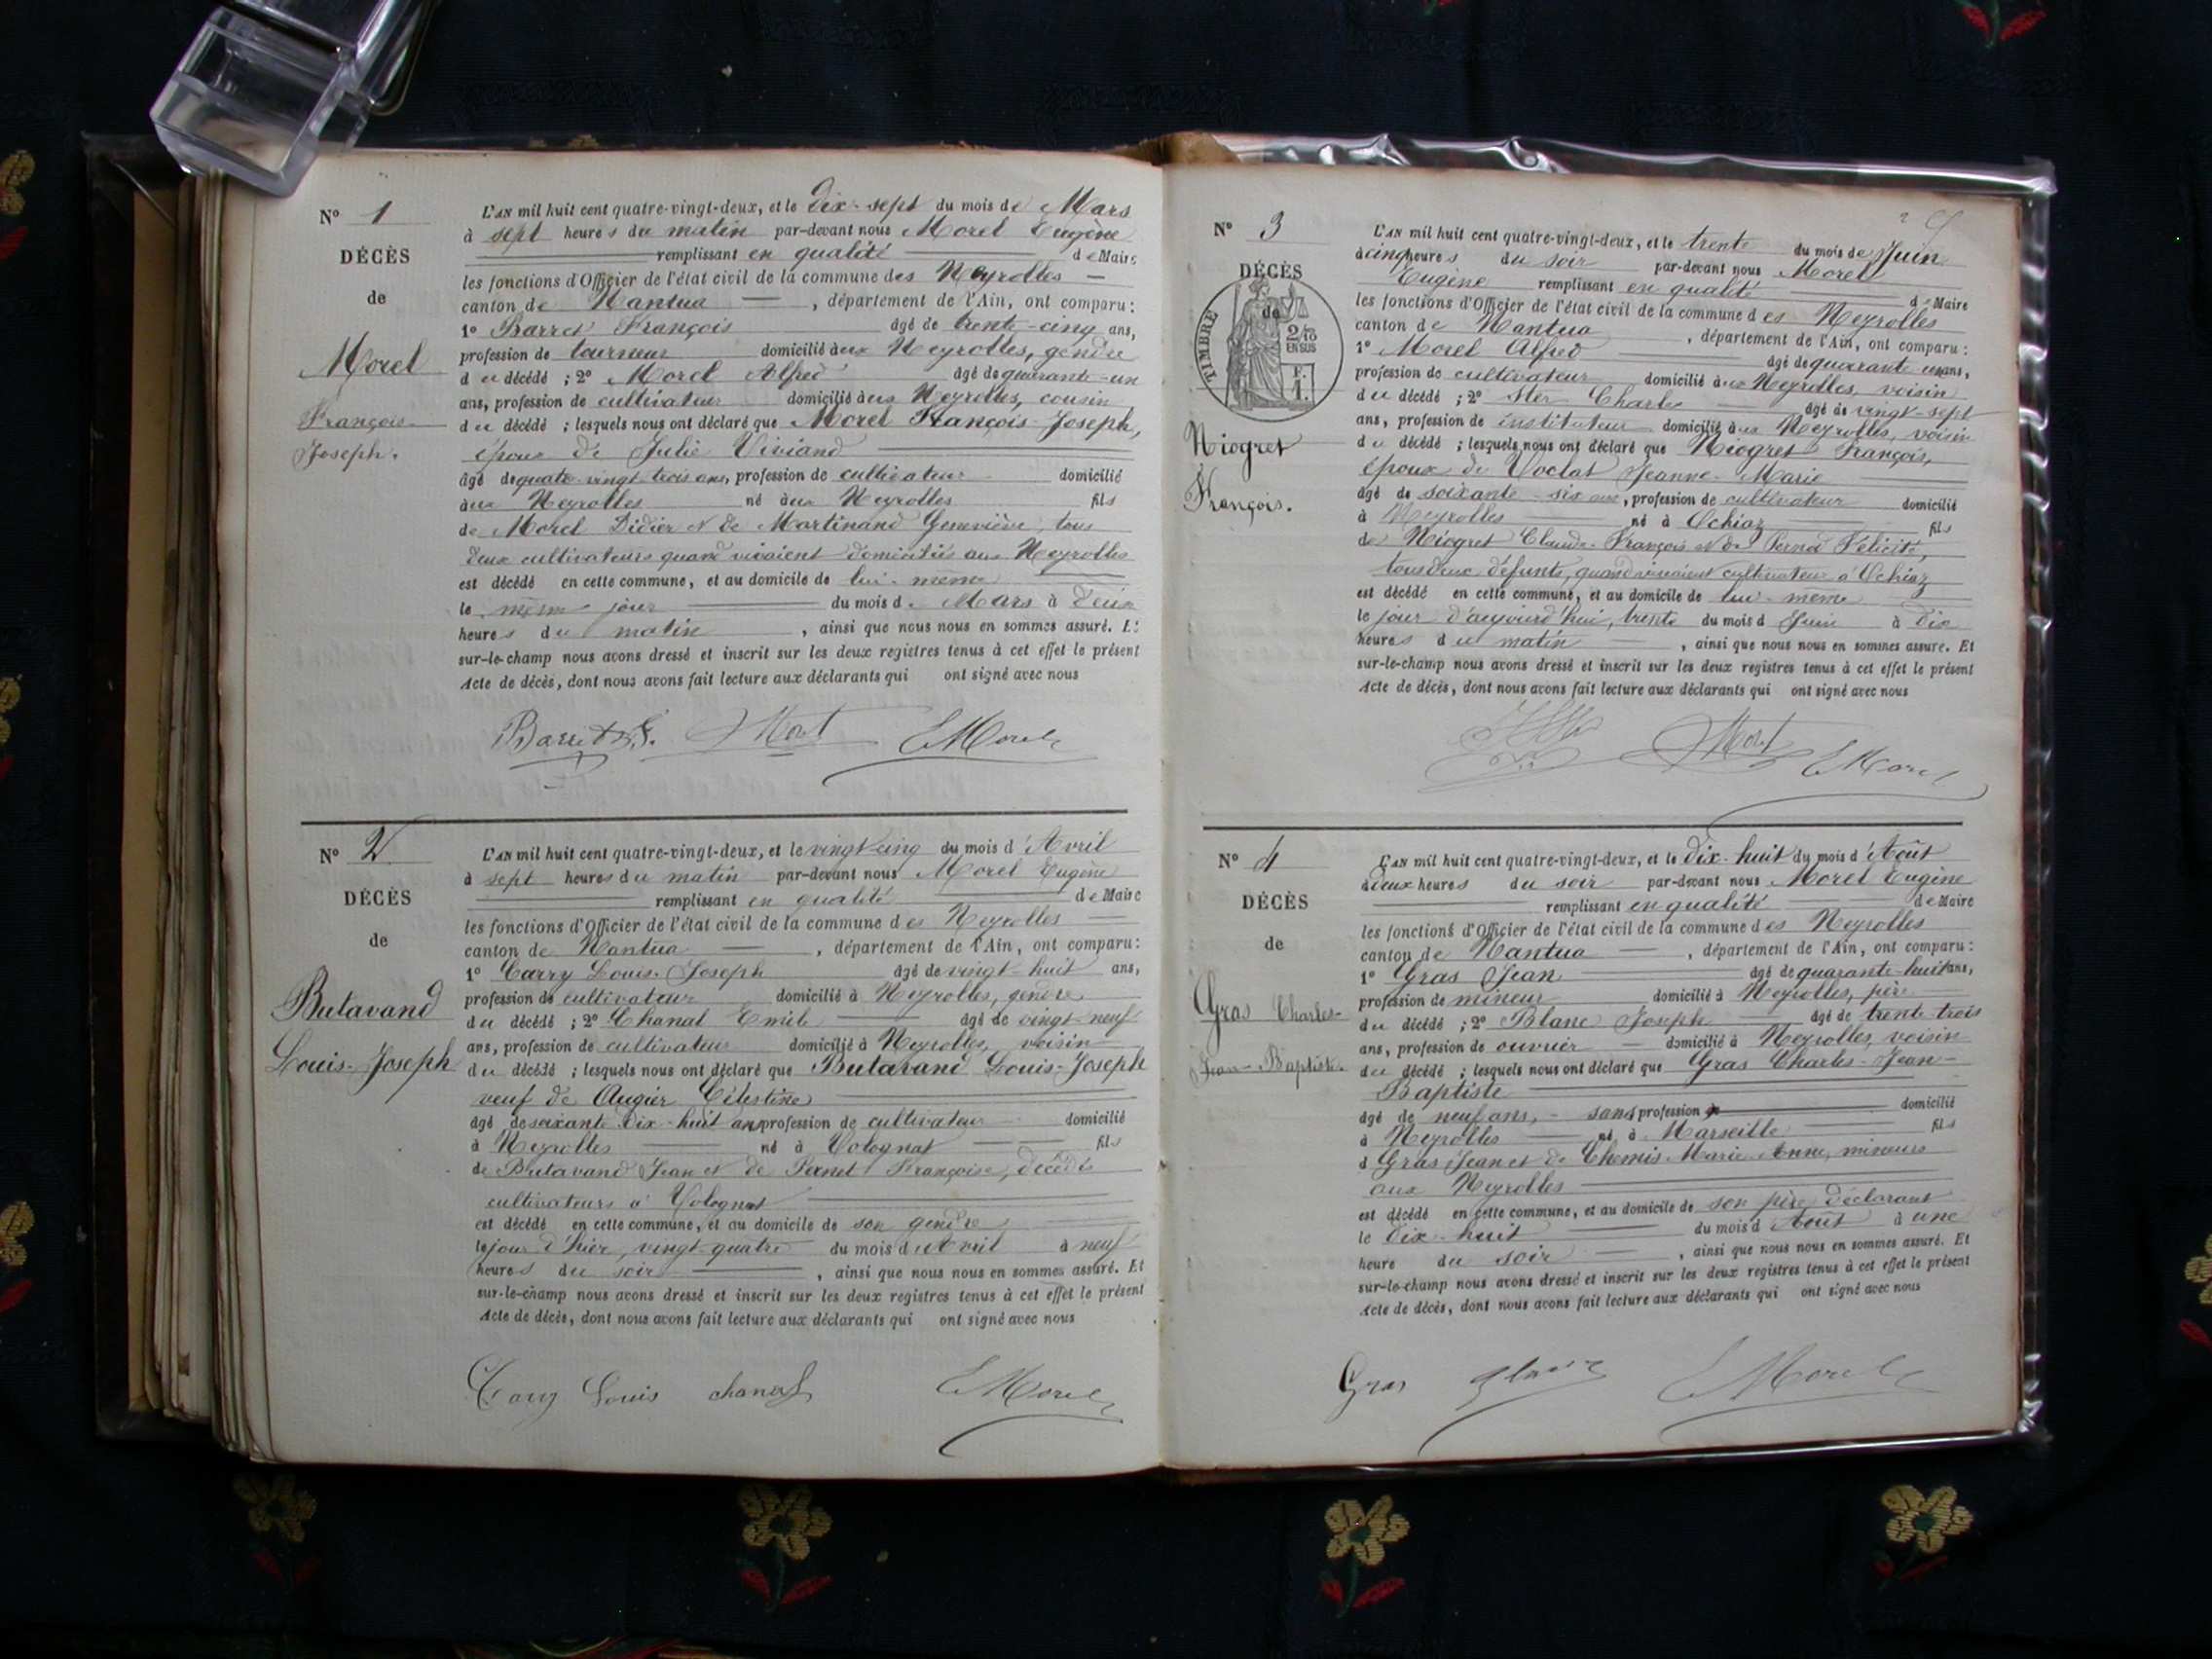 N° 1
DÉCÈS
de
Morel
François-
Joseph.
L'AN mil huit cent quatre-vingt-deux, et le dix-sept du mois de Mars
à sept heures du matin par-devant nous Morel Eugène
remplissant en qualité de Maire
les fonctions d'Officier de l'état civil de la commune des Neyrolles
canton de Nantua , département de l'Ain, ont comparu :
1° Barret François âgé de trente-cinq ans,
profession de tourneur domicilié aux Neyrolles, gendre
du décédé ; 2° Morel Alfred âgé de quarante-un
ans, profession de cultivateur domicilié aux Neyrolles, cousin
du décédé ; lesquels nous ont déclaré que Morel François-Joseph,
époux de Julie Viviand
âgé de quatre-vingt trois ans, profession de cultivateur domicilié
aux Neyrolles né aux Neyrolles fils
de Morel Didier et de Martinand Geneviève, tous
deux cultivateurs quand vivaient domiciliés aux Neyrolles
est décédé en cette commune, et au domicile de lui-même
le même jour du mois de Mars à deux
heures du matin , ainsi que nous nous en sommes assuré. Et
sur-le-champ nous avons dressé et inscrit sur les deux registres tenus à cet effet le présent
Acte de décès, dont nous avons fait lecture aux déclarants qui ont signé avec nous
EMorel
N° 2
DÉCÈS
de
Butavand
Louis-Joseph
L'AN mil huit cent quatre-vingt-deux, et le vingt-cinq du mois d'Avril
à sept heures du matin par-devant nous Morel Eugène
remplissant en qualité de Maire
les fonctions d'Officier de l'état civil de la commune des Neyrolles
canton de Nantua , département de l'Ain, ont comparu :
1° Carry Louis-Joseph âgé de vingt-huit ans,
profession de cultivateur domicilié à Neyrolles, gendre
du décédé ; 2° Chanal Emile âgé de vingt-neuf
ans, profession de cultivateur domicilié à Neyrolles, voisin
du décédé ; lesquels nous ont déclaré que Butavand Louis-Joseph
veuf de Augier Célestine
âgé de soixante dix-huit ans profession de cultivateur domicilié
à Neyrolles né à Volognat fils
de Butavand Jean et de Pernet Françoise, décédés
cultivateurs à Volognat
est décédé en cette commune, et au domicile de son gendre
le jour d'hier, vingt-quatre du mois d'Avril à neuf
heures du soir , ainsi que nous nous en sommes assuré. Et
sur-le-champ nous avons dressé et inscrit sur les deux registres tenus à cet effet le présent
Acte de décès, dont nous avons fait lecture aux déclarants qui ont signé avec nous
Cary Louis chanal EMorel
N° 3
DÉCÈS
de
TIMBRE
2/10
EN SUS
F.
1.
Niogret
François.
L'AN mil huit cent quatre-vingt-deux, et le trente du mois de Juin
à cinq heures du soir par-devant nous Morel
Eugène remplissant en qualité de Maire
les fonctions d'Officier de l'état civil de la commune des Neyrolles
canton de Nantua , département de l'Ain, ont comparu :
1° Morel Alfred âgé de quarante un ans,
profession de cultivateur domicilié aux Neyrolles, voisin
du décédé ; 2° Charles âgé de vingt-sept
ans, profession de instituteur domicilié aux Neyrolles, voisin
du décédé ; lesquels nous ont déclaré que Niogret François,
époux de Voclat Jeanne-Marie
âgé de soixante-six ans, profession de cultivateur domicilié
à Neyrolles né à Ochiaz fils
de Niogret Claude-François et de Félicité,
tous deux défunts, quand vivaient cultivateurs à Ochiaz
est décédé en cette commune, et au domicile de lui-même
le jour d'aujourd'hui, trente du mois d Juin à dix
heures du matin , ainsi que nous nous en sommes assuré. Et
sur-le-champ nous avons dressé et inscrit sur les deux registres tenus à cet effet le présent
Acte de décès, dont nous avons fait lecture aux déclarants qui ont signé avec nous
EMorel
N° 4
DÉCÈS
de
Gras Charles-
Jean-Baptiste.
L'AN mil huit cent quatre-vingt-deux, et le dix-huit du mois d'Août
à deux heures du soir par-devant nous Morel Eugène
remplissant en qualité de Maire
les fonctions d'Officier de l'état civil de la commune des Neyrolles
canton de Nantua , département de l'Ain, ont comparu :
1° Gras Jean âgé de quarante-huit ans,
profession de mineur domicilié à Neyrolles, père
du décédé ; 2° Blanc Joseph âgé de trente-trois
ans, profession de ouvrier domicilié à Neyrolles, voisin
du décédé ; lesquels nous ont déclaré que Gras Charles-Jean-
Baptiste
âgé de neuf ans, - sans profession domicilié
à Neyrolles né à Marseille fils
d Gras Jean et de Chemis Marie-Anne, mineurs
aux Neyrolles
est décédé en cette commune, et au domicile de son père déclarant
le dix-huit du mois d Août à une
heure du soir , ainsi que nous nous en sommes assuré. Et
sur-le-champ nous avons dressé et inscrit sur les deux registres tenus à cet effet le présent
Acte de décès, dont nous avons fait lecture aux déclarants qui ont signé avec nous
Gras EMorel